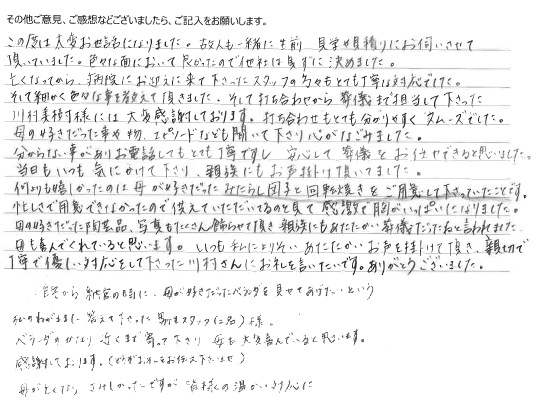 その他ご意見、ご感想などございましたら、ご記入をお願いします。
この度は大変お世話になりました。故人も一緒に生前 見学や見積りにお伺いさせて
頂いていました。色々な面において良かったので他社は見ずに決めました。
亡くなってから、病院にお迎えに来て下さったスタッフの方々もとても丁寧な対応でした。
そして細かく色々な事を教えて頂きました。そして打ち合わせから葬儀まで担当して下さった
川村美穂様には大変感謝しております。打ち合わせもとても分かりやすくスムーズでした。
母の好きだった事や物、エピソードなども聞いて下さり心がなごみました。
分からない事がありお電話してもとても丁寧ですし 安心して葬儀をお任せできると思いました。
当日もいつも気にかけて下さり、親族にもお声掛け頂いてました。
何よりも嬉しかったのは母が好きだったみたらし団子と回転焼きをご用意して下さっていたことです。
忙しさで用意できなかったので供えていただいているのを見て感激で胸がいっぱいになりました。
母の好きだった陶芸品、写真もたくさん飾らせて頂き親族にもあたたかい葬儀だったねと言われました。
母も喜んでくれていると思います。いつも私によりそい あたたかいお声を掛けて頂き、親切で
丁寧で優しい対応をして下さった川村さんにお礼を言いたいです。ありがとうございました。
自宅から 納棺の時に、母が好きだったベランダを見せてあげたいという
私のわがままに答えて下さった男性スタッフ(二名)様。
ベランダのかなり近くまで寄って下さり 母も大変喜んでいると思います。
感謝しております。(どうぞよろしくお伝え下さいませ)
母が亡くなり さみしかったですが 皆様の温かい対応に